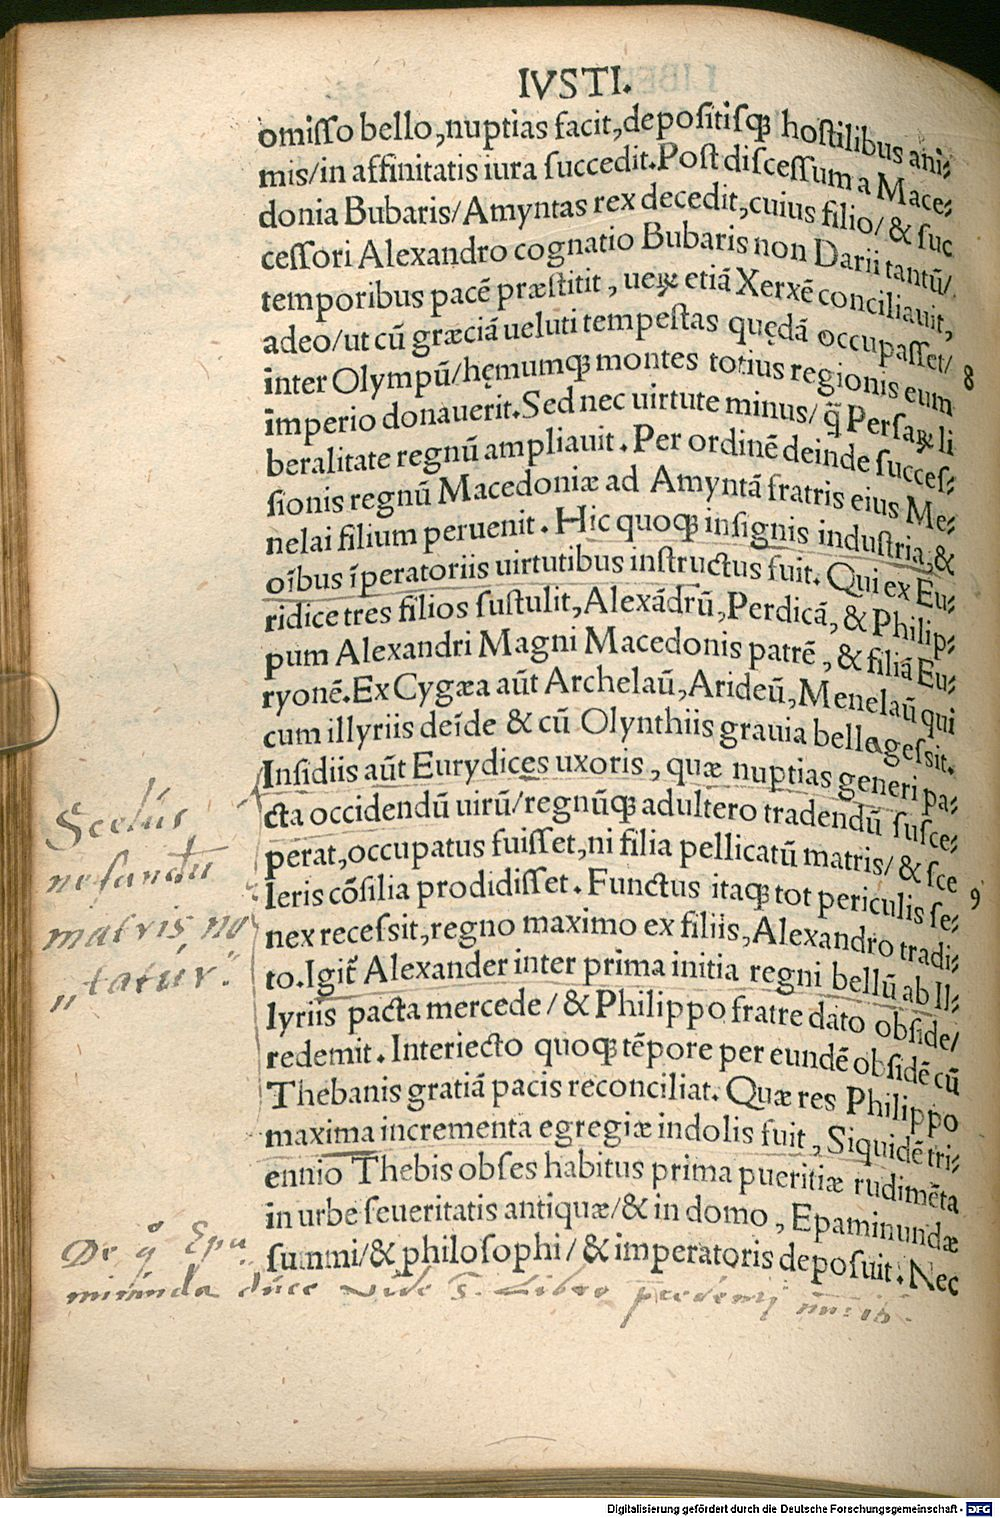 IVSTI.
omiſſo bello, nuptias facit, depoſitiſqꝫ hoſtilibus ani⸗
mis/in affinitatis iura ſuccedit. Poſt diſceſſum a Mace⸗
donia Bubaris/Amyntas rex decedit, cuius filio/& ſuc
ceſſori Alexandro cognatio Bubaris non Darii tantū/
temporibus pacē præſtitit, ueꝝ etiā Xerxē conciliauit,
adeo/ut cū græciā ueluti tempeſtas quędā occupaſſet/
inter Olympū/hęmumqꝫ montes totius regionis eum 8
imperio donauerit. Sed nec uirtute minus/ q̄ Perſaꝝ li
beralitate regnū ampliauit. Per ordinē deinde ſucceſ⸗
ſionis regnū Macedoniæ ad Amyntā fratris eius Me⸗
nelai filium peruenit. Hic quoqꝫ inſignis induſtria, &
oībus īperatoriis uirtutibus inſtructus fuit. Qui ex Eu⸗
ridice tres filios ſuſtulit, Alexādrū, Perdicā, & Philip⸗
pum Alexandri Magni Macedonis patrē, & filiā Eu⸗
ryonē. Ex Cygæa aūt Archelaū, Arideū, Menelaū qui
cum illyriis deīde & cū Olynthiis grauia bella geſsit.
Inſidiis aūt Eurydices uxoris, quæ nuptias generi pa⸗
cta occidendū uirū/regnūqꝫ adultero tradendū ſuſce⸗
perat, occupatus fuiſſet, ni filia pellicatū matris/ & ſce
leris cōſilia prodidiſſet. Functus itaqꝫ tot periculis ſe⸗ 9
nex receſsit, regno maximo ex filiis, Alexandro tradi⸗
to. Igit̄ Alexander inter prima initia regni bellū ab Il⸗
lyriis pacta mercede/ & Philippo fratre dato obſide/
redemit. Interiecto quoqꝫ tēpore per eundē obſidē cū
Thebanis gratiā pacis reconciliat. Quæ res Philippo
maxima incrementa egregiæ indolis fuit, Siquidē tri⸗
ennio Thebis obſes habitus prima pueritiæ rudimēta
in urbe ſeueritatis antiquæ/& in domo, Epaminundæ
ſummi/& philoſophi/ & imperatoris depoſuit. Nec
Scelus
nefandū
matris no
„tatur.
De q° Epa
minunda duce vide S. Libro
Digitalisierung gefördert durch die Deutsche Forschungsgemeinschaft - DFG